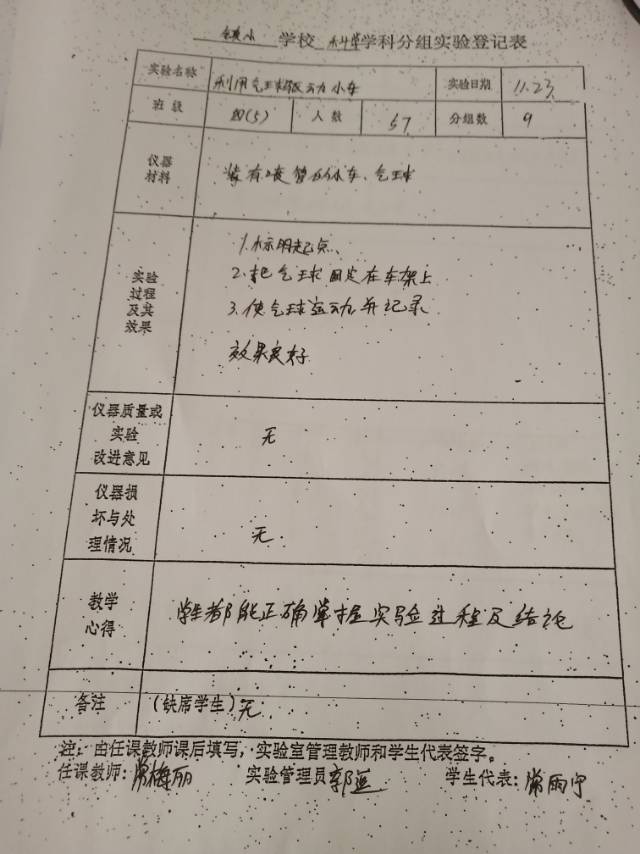 镇小 学校 科学学科分组实验登记表
实验名称 利用气球驱动小车 实验日期 11.23
班级 四(5) 人数 57 分组数 9
仪器
材料
装有吸管的小车、气球
实验
过程
及其
效果
1.标明起点、
2.把气球固定在车架上
3.使气球运动并记录
效果良好
仪器质量或
实验
改进意见
无
仪器损
坏与处
理情况
无.
教学
心得
学生都能正确掌握实验过程及结论
备注 (缺席学生)无.
注:由任课教师课后填写,实验室管理教师和学生代表签字。
任课教师:常梅丽 实验管理员 学生代表:常雨宁